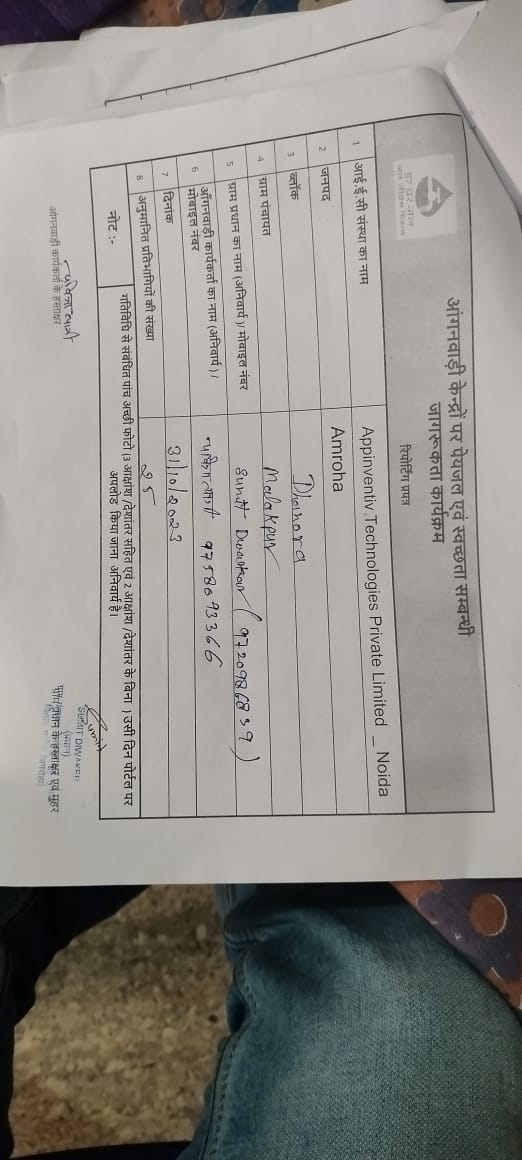 हर घर जल
जल जीवन मिशन
आंगनवाड़ी केन्द्रों पर पेयजल एवं स्वच्छता सम्बन्धी
जागरूकता कार्यक्रम
रिपोर्टिंग प्रपत्र
1 आई.ई.सी संस्था का नाम Appinventiv Technologies Private Limited _ Noida
2 जनपद Amroha
3 ब्लॉक Dhanora
4 ग्राम पंचायत Malakpur
5 ग्राम प्रधान का नाम (अनिवार्य )/ मोबाइल नंबर Sumit Diwaker (9720986839)
6 आँगनवाड़ी कार्यकर्ता का नाम (अनिवार्य )/ मोबाइल नंबर 9758093366
7 दिनांक 31/10/2023
8 अनुमानित प्रतिभागियों की संख्या 25
नोट :- गतिविधि से संबंधित पांच अच्छी फोटो (3 आक्षांश /देशांतर सहित एवं 2 आक्षांश /देशांतर के बिना ) उसी दिन पोर्टल पर
अपलोड किया जाना अनिवार्य है।
Sumit
SUMIT DIWAKER
(प्रधान)
आंगनवाड़ी कार्यकर्ता के हस्ताक्षर
ग्राम प्रधान के हस्ताक्षर एवं मुहर